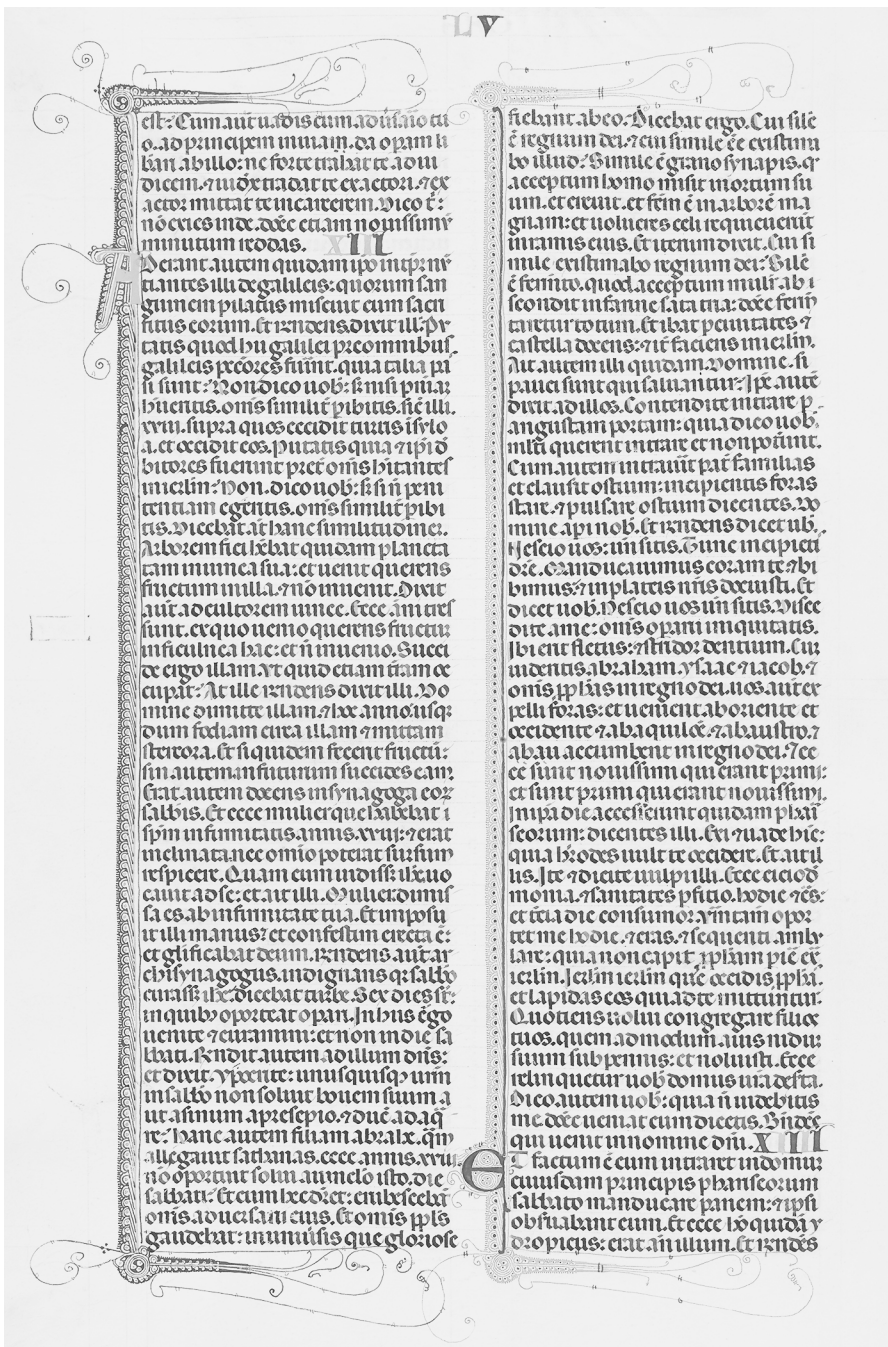 LV
est. Cum aut uadis cum aduersario tu
o. ad principem in uiam. da opam li
bari ab illo: ne forte trahat te ad iu
dicem. ⁊ iudex tradat te exactori. ⁊ ex
actor mittat te in carcerem. Dico t:
nō exies inde. donec etiam nouissimū
minutum reddas. XIII
Aderant autem quidam ipō in tpr nū
tiantes illi de galileis: quorum san
guinem pilatus miscuit cum sacri
ficiis eorum. Et rn̄dens dixit ill. Pu
tatis quod hii galilei pre omnibus
galileis peccores fuerint. quia talia pas
si sunt: Non dico uob: sꝫ nisi pniam
hueritis. om̄s similit pibitis. sic illi.
xviii. supra quos cecidit turris i sylo
a. et occidit eos. Putatis quia ⁊ ipi d
bitores fuerint pret om̄s hitantes
in ierlm: Non. dico uob: sꝫ si n̄ peni
tentiam egeritis. om̄s similit pibi
tis. Dicebat at hanc similitudinem.
Arborem fici hebat quidam planta
tam in uinea sua: et uenit querens
fructum in illa. ⁊ nō inuenit. Dixit
aut ad cultorem uinee. Ecce anni tres
sunt. ex quo uenio querens fructum
in ficulnea hac: et n̄ inuenio. Succi
de ergo illam. Vt quid etiam terram oc
cupat: At ille rn̄dens dixit illi. Do
mine dimitte illam. ⁊ hoc anno. usq
dum fodiam circa illam ⁊ mittam
stercora. Et siquidem fecerit fructū:
sin autem in futurum succides eam.
Erat autem docens in synagoga eor
sabbis. Et ecce mulier que habebat i
spm infirmitatis annis. xviij: ⁊ erat
inclinata. nec omīo poterat sursum
respicere. Quam cum uidisset ihc. uo
cauit ad se: et ait illi. Mulier. dimis
sa es ab infirmitate tua. Et imposu
it illi manus: et confestim erecta ē:
et glificabat deum. rn̄dens aut ar
chisynagogus. indignans qꝛ sabbo
curasset ihc. dicebat turbe. Sex dies st:
in quibꝫ oporteat opari. In hiis ergo
uenite ⁊ curamini: et non in die sa
bbati. Rn̄dit autem ad illum dn̄s:
et dixit. ypocrite: unusquisqꝫ urm
in sabbo non soluit bouem suum a
ut asinum a presepio. ⁊ ducit adaq
re: Hanc autem filiam abrahe. quā
allegauit sathanas. ecce annis. xviii
nō oportuit solui a uinclo isto. die
sabbati: Et cum hec diceret: erubescebāt
om̄s aduersarii eius. Et omis ppls
gaudebat: in uniuersis que gloriose
fiebant ab eo. Dicebat ergo. Cui sile
ē regnum dei. ⁊ cui simile ēē existima
bo illud: Simile ē grano synapis. q
acceptum homo misit in ortum su
um. et creuit. et fcm ē in arborē ma
gnam: et uolucres celi requieuerūt
in ramis eius. Et iterum dixit. Cui si
mile existimabo regnum dei: Sile
ē fermto. quod acceptum mulr ab
scondit in farine sata tria: donec ferm
taretur totum. Et ibat p ciuitates ⁊
castella docens: ⁊ it faciens in ierlm.
Ait autem illi quidam. Domine. si
pauci sunt qui saluantur: Ipe autē
dixit ad illos. Contendite intrare p
angustam portam: quia dico uob.
mlti querent intrare et non poterunt.
Cum autem intrauit pat familias
et clausit ostium: incipientis foras
stare. ⁊ pulsare ostium dicentes. Do
mine api nob. Et rn̄dens dicet ub.
Nescio uos: un sitis. Tunc incipieti
dre. Manducauimus coram te ⁊ bi
bimus: ⁊ in plateis nris docuisti. Et
dicet uob. Nescio uos un sitis. Disce
dite a me: omis operarii iniquitatis.
Ibi erit fletus: ⁊ stridor dentium. Cū
uidentis. abraham. ysaac ⁊ iacob. ⁊
omis pphas in regno dei. uos aut ex
pelli foras: et uenient ab oriente et
occidente ⁊ ab aquilōe. ⁊ ab austro. ⁊
 accumbent in regno dei. ⁊ ec
ce sunt nouissimi qui erant primi:
et sunt primi qui erant nouissimi.
In ipa die accesserunt quidam phari
seorum: dicentes illi. Exi ⁊ uade hic:
quia herodes uult te occidere. Et ait il
lis. Ite ⁊ dicite uulpi illi. Ecce eicio d
monia. ⁊ sanitates pficio. hodie ⁊ cs:
et tcia die consumor. Verūtam opor
tet me hodie. ⁊ cras. ⁊ sequenti amb
lare: quia non capit ppham pire ex
ierlm. Ierlm ierlm que occidis pphas.
et lapidas eos qui ad te mittuntur.
Quotiens uolui congregare filios
tuos. quemadmodum auis nidum
suum sub pennis: et noluisti. Ecce
relinquetur uob domus ura deserta.
Dico autem uob: quia n̄ uidebitis
me. donec ueniat cum dicetis. Bn̄dcs
qui uenit in nomine dn̄i. XIIII
ET factum ē cum intraret in domum
cuiusdam principis phariseorum
sabbato manducare panem: ⁊ ipsi
obseruabant eum. Et ecce hō quidā y
dropicus: erat an illum. Et rn̄dēs